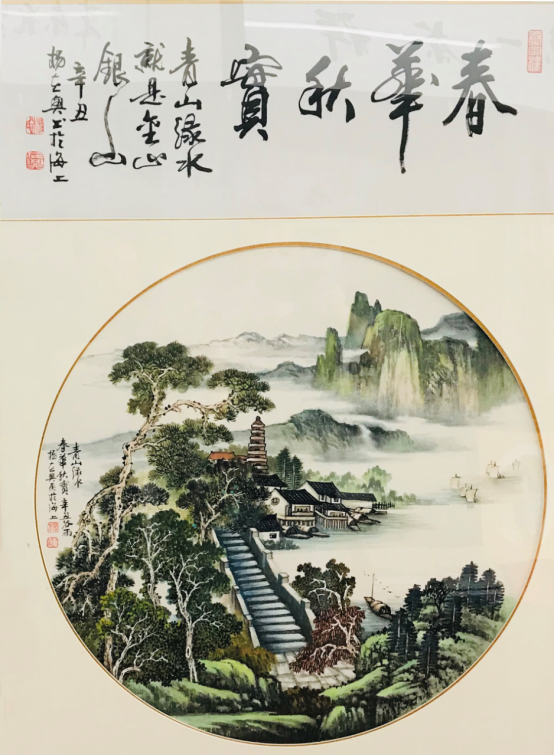 春華秋實
青山綠水
就是金山
銀山
辛丑
楊 書於海上
青山綠水
春華秋實 辛丑
楊 於海上